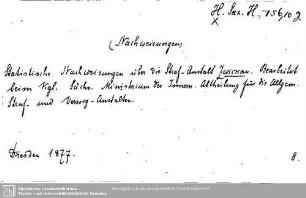 H. Sax. H., 156, 10 g
X
(Nachweisungen)
Statistische Nachweisungen über die Straf-Anstalt Zwickau. Bearbeitet
beim Kgl. Sächs. Ministerium des Innern. Abtheilung für die Allgem.
Straf- und Versorg-Anstalten.
Dresden 1877. 8.
Sächsische Landesbibliothek -
Staats- und Universitätsbibliothek Dresden